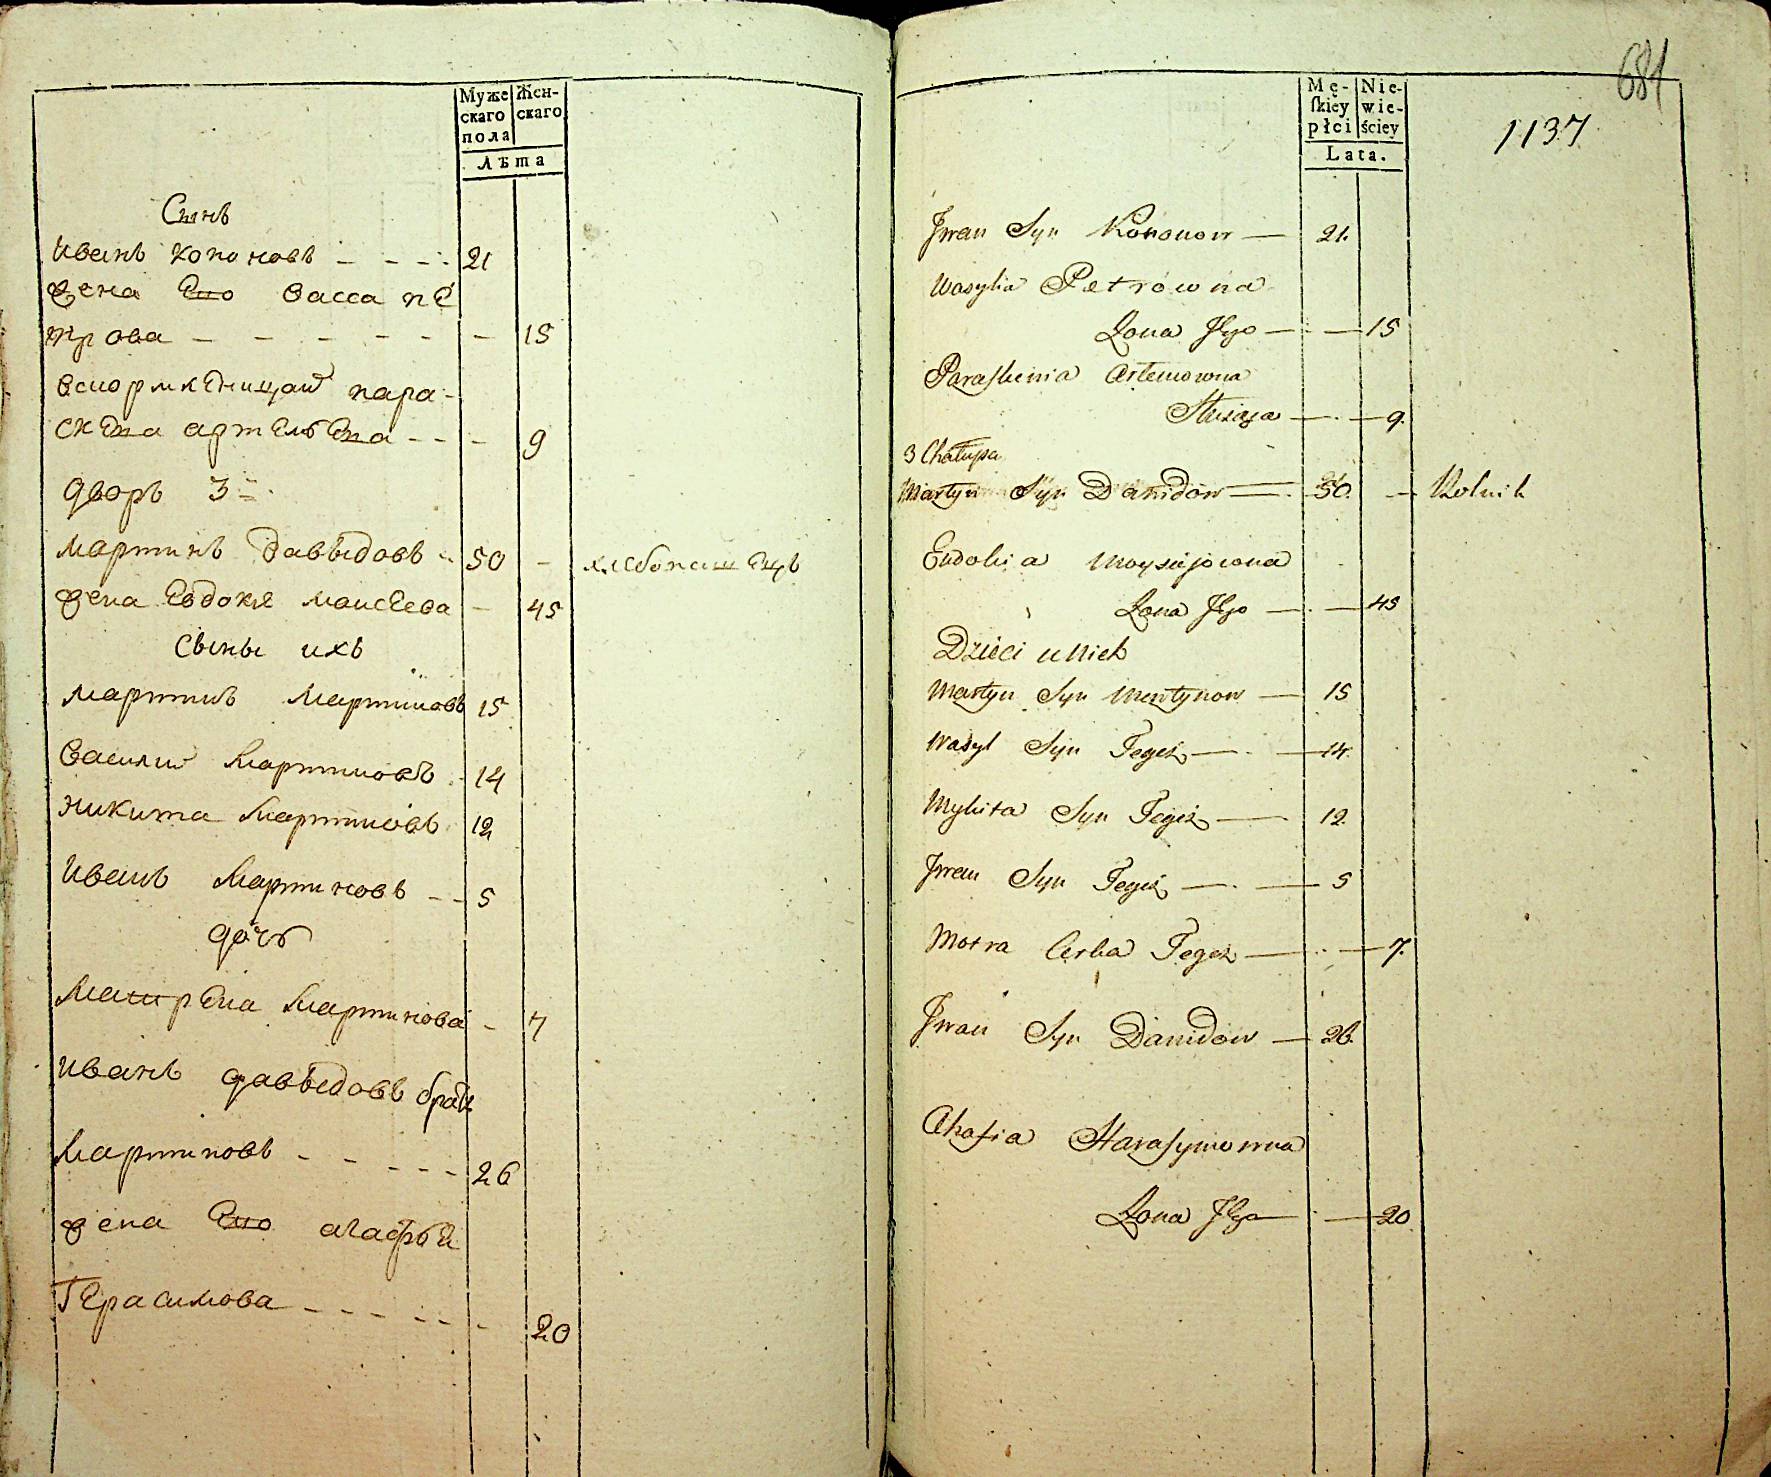 Муже скаго пола
Жен- скаго
Лѣта
Сынъ
Иванъ Кононовъ - - - - 21
Жена Ево Васса пе
трова - - - - - - 15
пара-
скева - - - 9
дворъ 3й
Мартинъ Давыдовъ - 50 - хлебопашецъ
Жена Евдокя моисеева - 45
Сыны ихъ
Мартинъ Мартиновъ 15
Василий Мартиновъ - 14
Никита Мартиновъ 12
Иванъ Мартиновъ - - 5
дочь
Матрена Мартинова - 7
Иванъ Давыдовъ братъ
Мартиновъ - - - - - - 26
Жена Ево агафья
Герасимова - - - - - - 20
681
1137
Mę- ſkiey płci
Nie- wie- ściey
Lata.
Jwan Syn Kononow — 21.
Wasylia Petrówna
Żona Jego — — 15
Paraſkewia Artemowna
Służąca — — 9.
3 Chałupa
Martyn Syn Dawidow — 50. — Rolnik
Eudokia Moysiejowna
Żona Jego — — 45
Dzieci u Nich
Martyn Syn Martynow — 15
Wasyl Syn Tegoż — — 14.
Mykita Syn Tegoż — 12.
Jwan Syn Tegoż — — 5
Motra Corka Tegoż — — 7.
Jwan Syn Dawidow — 26.
Ahafia Haraſymowna
Żona Jego — — 20.